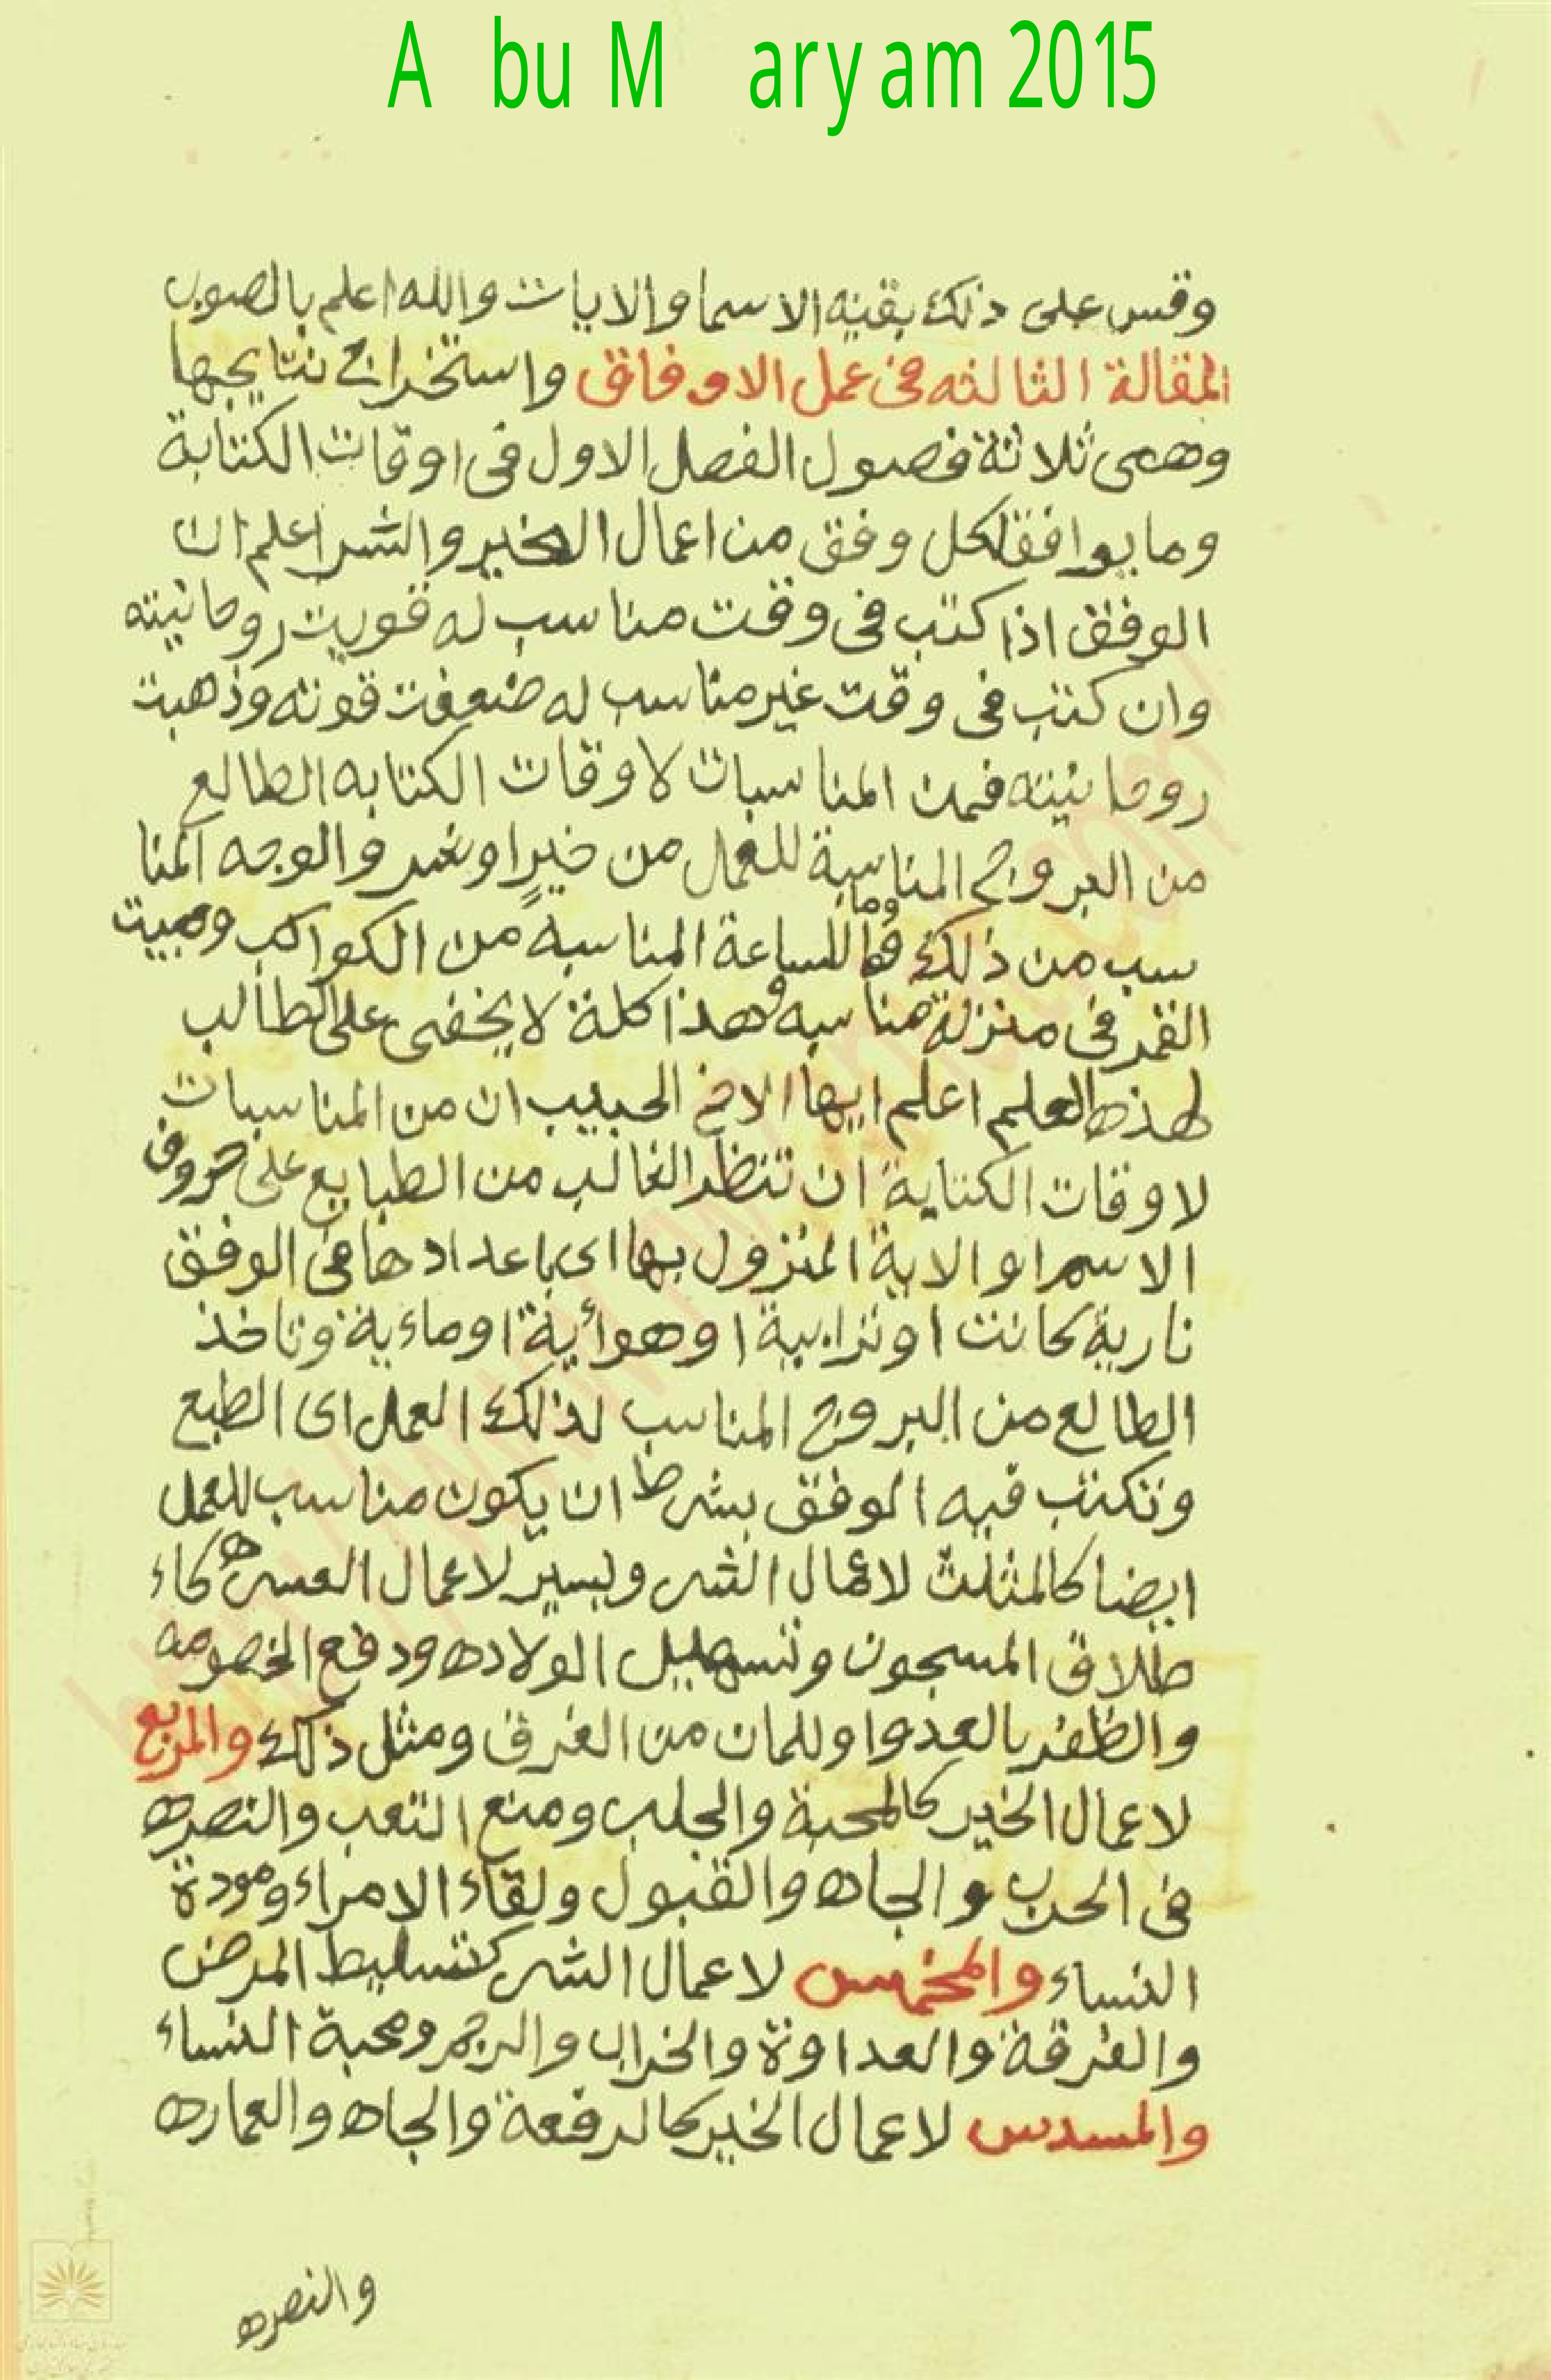 A bu M aryam 2015
وقس على ذلك بقيه الاسما والايات والله اعلم بالصوب
المقالة الثالثه فى عمل الاوفاق واستخراج نتايجها
وهى ثلاثة فصول الفصل الاول فى اوقات الكتابة
وما يوافق لكل وفق من اعمال الخير والشر اعلم ان
الوفق اذا كتب فى وقت مناسب له قويت روحانيته
وان كتب فى وقت غير مناسب له ضعفت قوته وذهبت
روحانيته فمن المناسبات لاوقات الكتابه الطالع
من البروج المناسبة للعمل من خيرٍ او شر والوجه المنا
سب من ذلك وما الساعة المناسبه من الكواكب ومبيت
القمر فى منزلة مناسبه وهذا كلة لا يخفى على الطالب
لهذه العلم اعلم ايها الاخ الحبيب ان من المناسبات
لاوقات الكتاية ان تنظر الغالب من الطبايع على حروف
الاسما او الاية المنزول بها اى باعدادها فى الوفق
نارية كانت او ترابية او هوأية او ماءية وتاخذ
الطالع من البروج المناسب لذلك العمل اى الطبع
وتكتب فيه الوفق بشرط ان يكون مناسب للعمل
ايضا كالمثلث لاعمال الشر ويسير لاعمال العسره كاء
طلاق المسجون وتسهيل الولاده ودفع الخصومه
والظفر بالعدوا وللمان من الغرق ومثل ذلك والمربع
لاعمال الخير كالمحبة والجلب ومنع التعب والنصره
فى الحرب والجاه والقبول ولقاء الامراء ومودة
النساء والمخمس لاعمال الشر كتسليط المرض
والفرقة والعداوة والخراب والرجم ومحبة النساء
والمسدس لاعمال الخير كالرفعة والجاه والعماره
والنصره